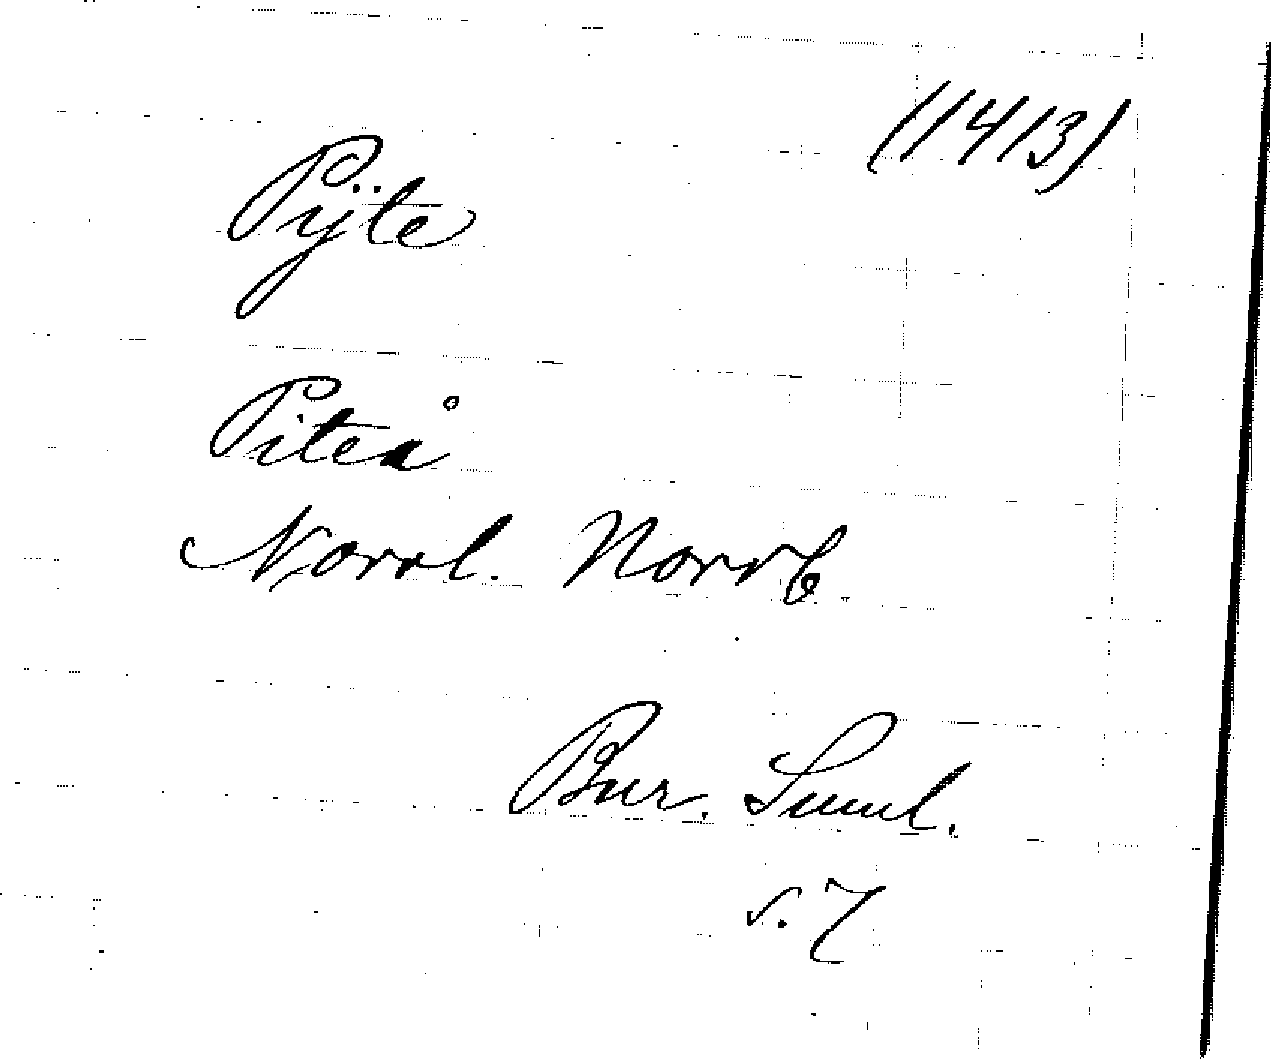 (1413)
Pÿte
Piteå
Norrl. Norrb.
Bur. Suml.
s. 7